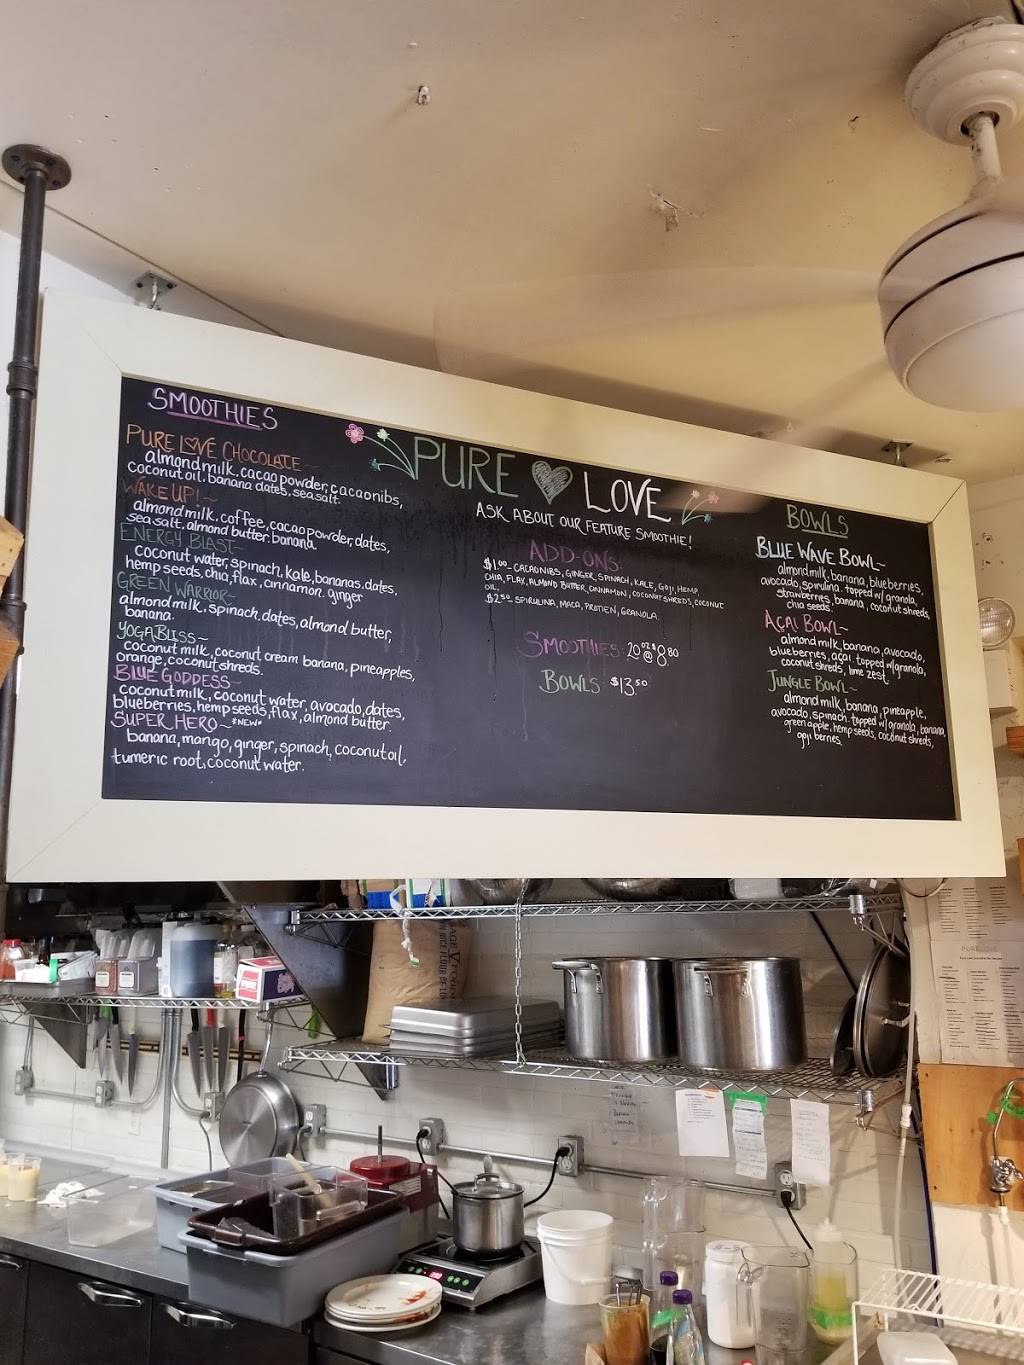 SMOOTHIES
PURE LOVE CHOCOLATE~
almond milk, cacao powder, cacaonibs,
coconut oil, banana dates, sea salt.
WAKE UP!~
almond milk, coffee, cacao powder, dates,
sea salt, almond butter, banana
ENERGY BLAST~
coconut water, spinach, kale, bananas, dates,
hemp seeds, chia, flax, cinnamon, ginger
GREEN WARRIOR~
almond milk, spinach, dates, almond butter,
banana.
YOGA BLISS~
coconut milk, coconut cream banana, pineapples,
orange, coconut shreds.
BLUE GODDESS~
coconut milk, coconut water, avocado, dates,
blueberries, hemp seeds, flax, almond butter.
SUPER HERO~ *NEW*
banana, mango, ginger, spinach, coconut oil,
tumeric root, coconut water.
PURE LOVE
ASK ABOUT OUR FEATURE SMOOTHIE!
ADD-ONS:
$1.00- CACAONIBS, GINGER, SPINACH, KALE, GOJI, HEMP,
CHIA, FLAX, ALMOND BUTTER, CINNAMON, COCONUT SHREDS, COCONUT
OIL.
$2.50- SPIRULINA, MACA, PROTIEN, GRANOLA.
SMOOTHIES: 20oz @ $8.80
BOWLS $13.50
BOWLS
BLUE WAVE BOWL~
almond milk, banana, blueberries,
avocado, spirulina. topped w/ granola,
strawberries, banana, coconut shreds,
chia seeds.
AÇAI BOWL~
almond milk, banana, avocado,
blueberries, açai. topped w/ granola,
coconut shreds, lime zest.
JUNGLE BOWL~
almond milk, banana, pineapple,
avocado, spinach. topped w/ granola, banana,
green apple, hemp seeds, coconut shreds,
goji berries.